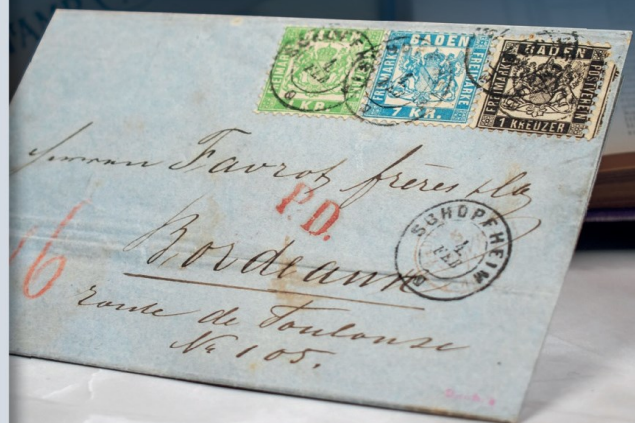 BADEN
FREIMARKE
7 KR.
BADEN
FREIMARKE
POSTVEREIN
1 KREUZER
Herren Favrot frères
P.D.
SCHOPFHEIM
4
FEB
Bordeaux
16
route de Toulouse
No 105.